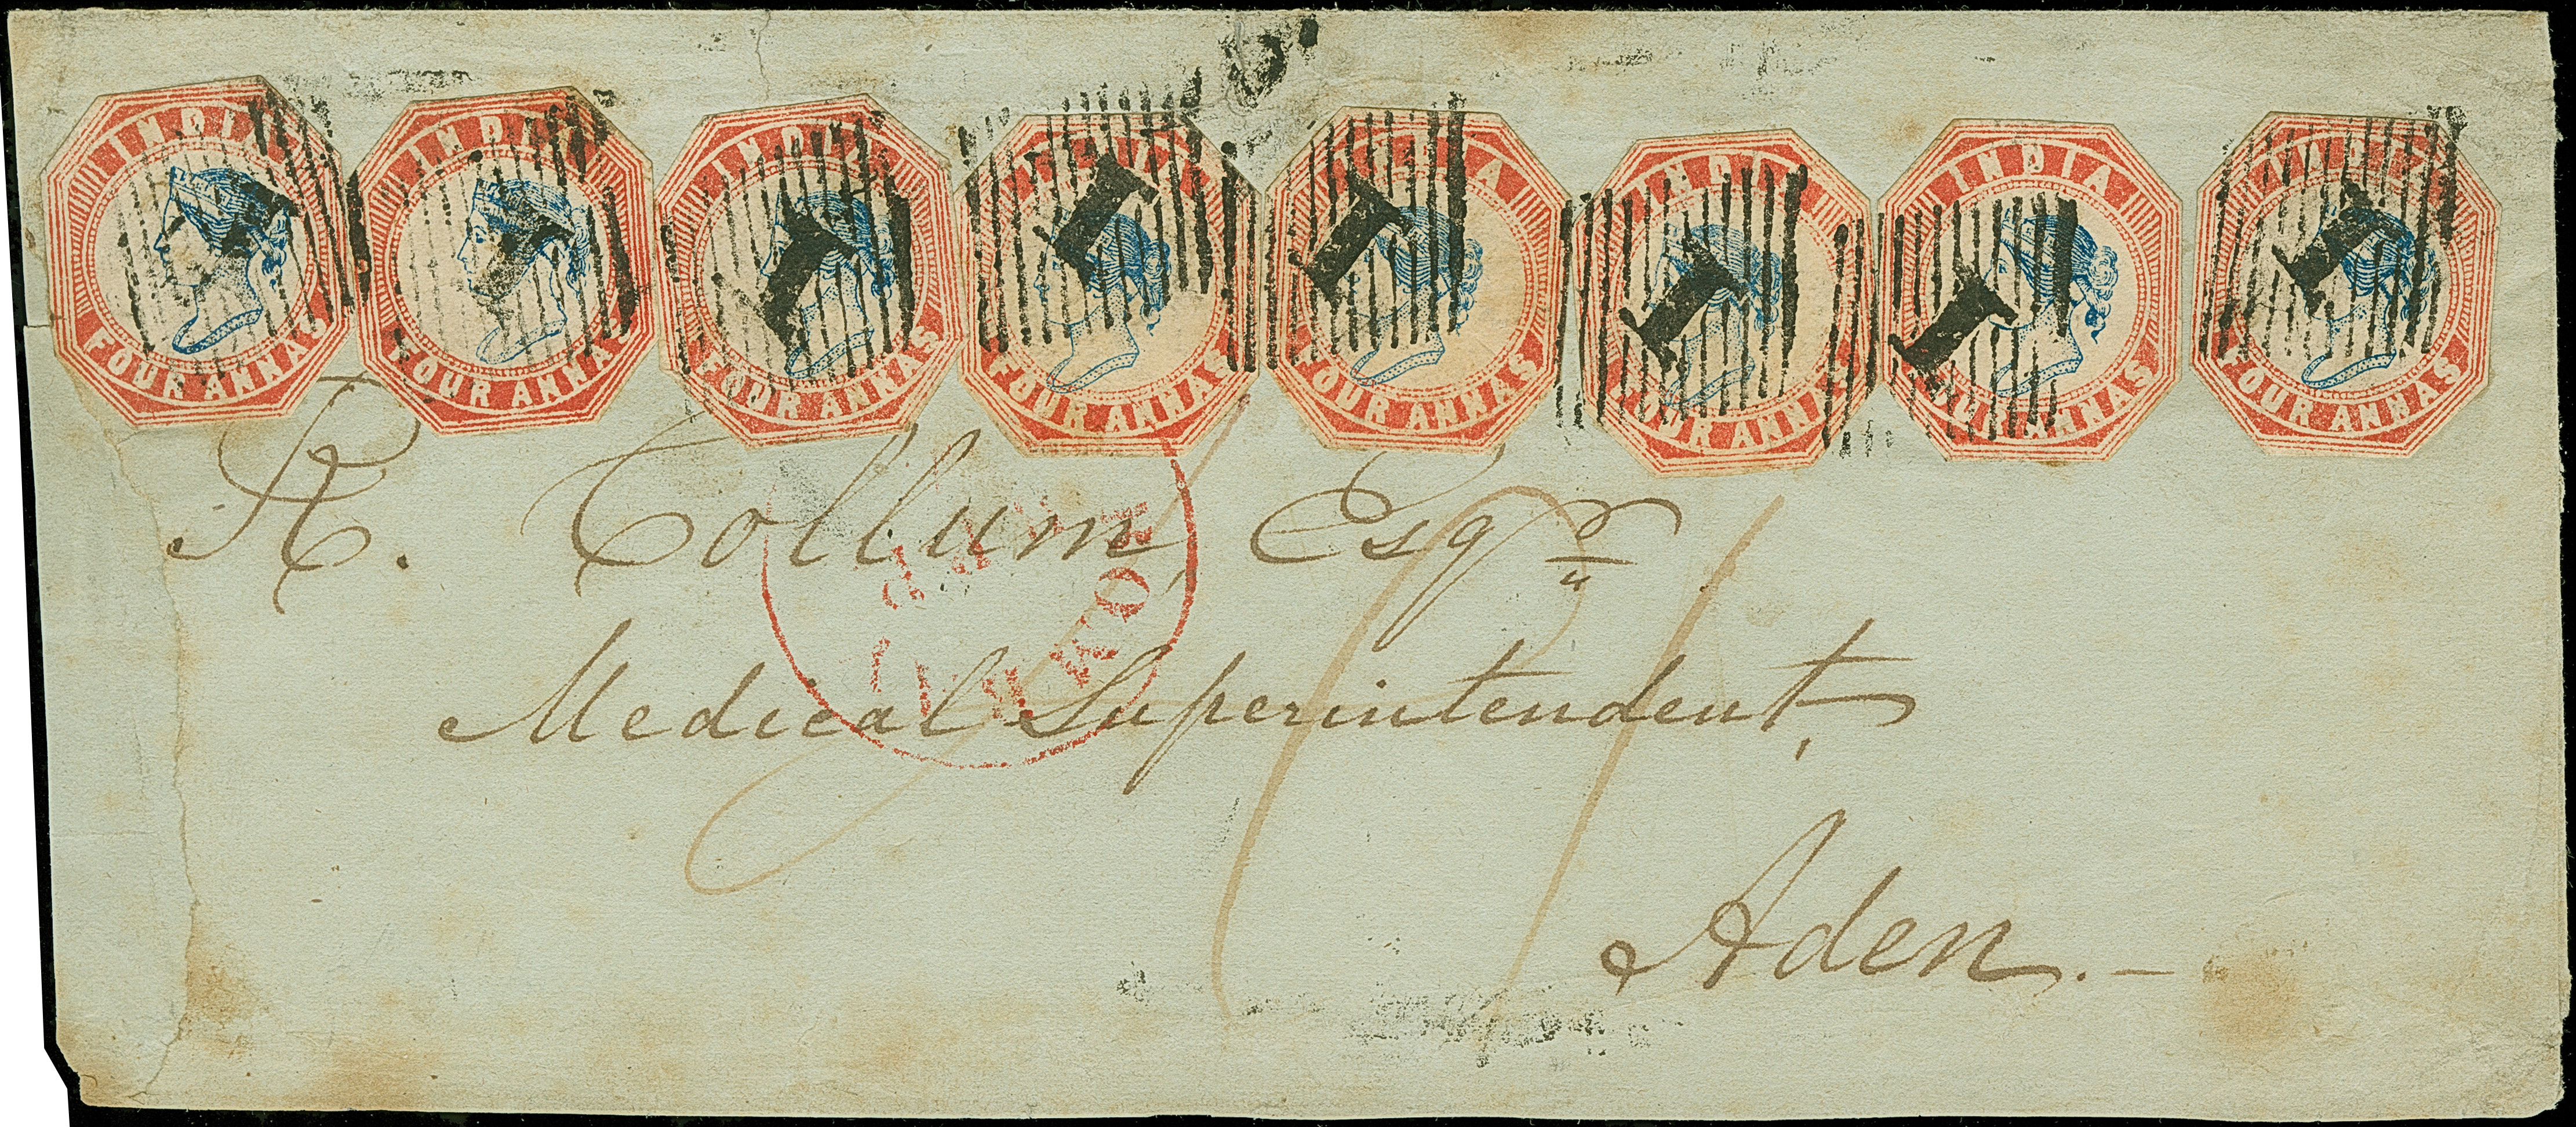 INDIA FOUR ANNAS
INDIA FOUR ANNAS
INDIA FOUR ANNAS
INDIA FOUR ANNAS
INDIA FOUR ANNAS
INDIA FOUR ANNAS
INDIA FOUR ANNAS
INDIA FOUR ANNAS
1 1 1 1 1 1 1 1
R. Collum, Esqr
Medical Superintendent,
Aden.—